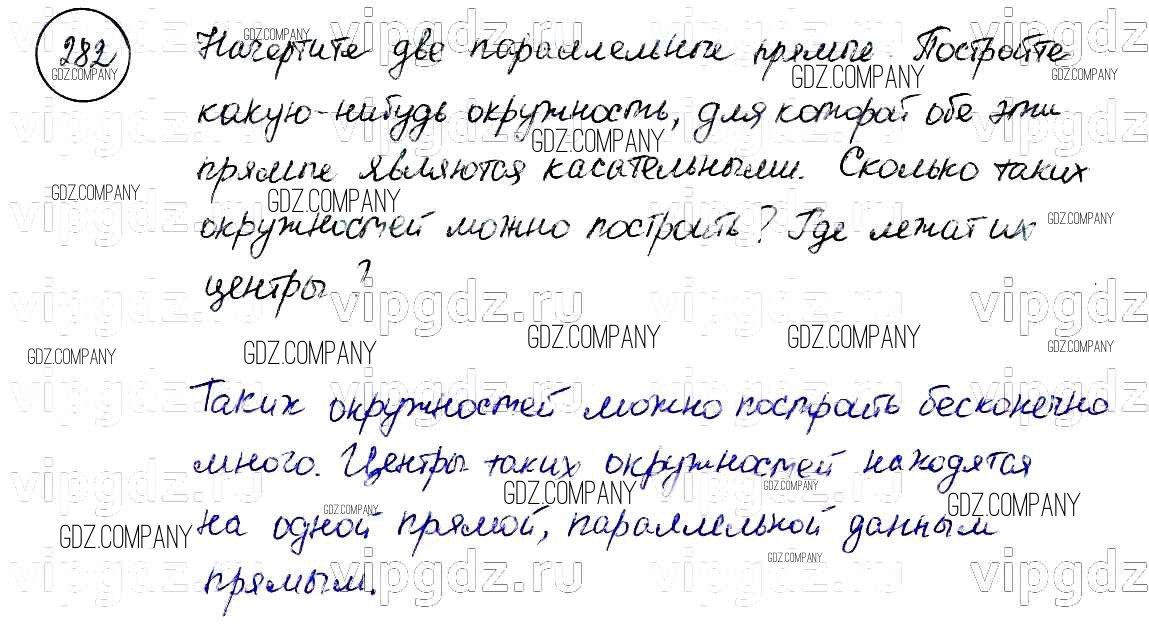 282
Начертите две параллельные прямые. Постройте
какую-нибудь окружность, для которой обе эти
прямые являются касательными. Сколько таких
окружностей можно построить? Где лежат их
центры?
Таких окружностей можно построить бесконечно
много. Центры таких окружностей находятся
на одной прямой, параллельной данным
прямым.
GDZ.COMPANY
vipgdz.ru